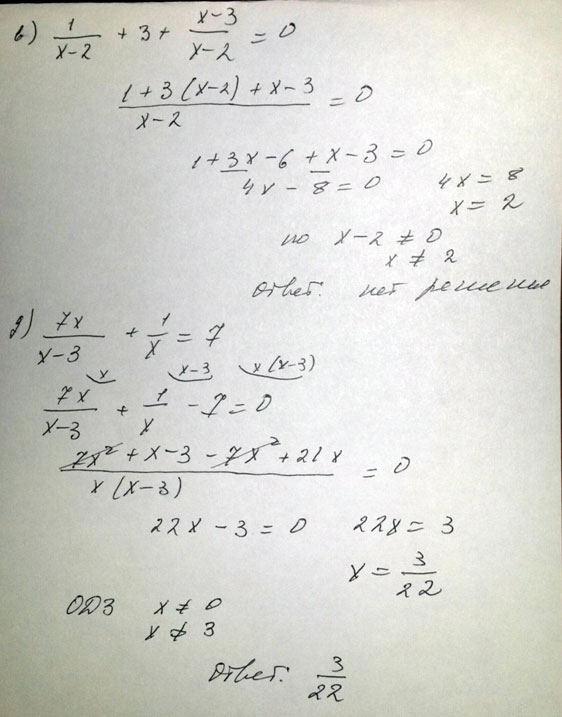 в) 1/(x-2) + 3 + (x-3)/(x-2) = 0
(1+3(x-2)+x-3)/(x-2) = 0
1+3x-6+x-3=0
4x-8=0 4x=8
x=2
но x-2≠0
x≠2
Ответ: нет решения
д) 7x/(x-3) + 1/x = 7
x x-3 x(x-3)
7x/(x-3) + 1/x - 7=0
(7x²+x-3-7x²+21x)/(x(x-3)) = 0
22x-3=0 22x=3
x=3/22
ОДЗ x≠0
x≠3
Ответ: 3/22